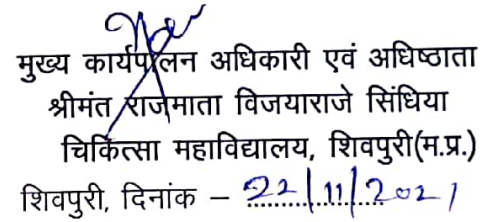 मुख्य कार्यपालन अधिकारी एवं अधिष्ठाता
श्रीमंत राजमाता विजयाराजे सिंधिया
चिकित्सा महाविद्यालय, शिवपुरी(म.प्र.)
शिवपुरी, दिनांक – 22/11/2021